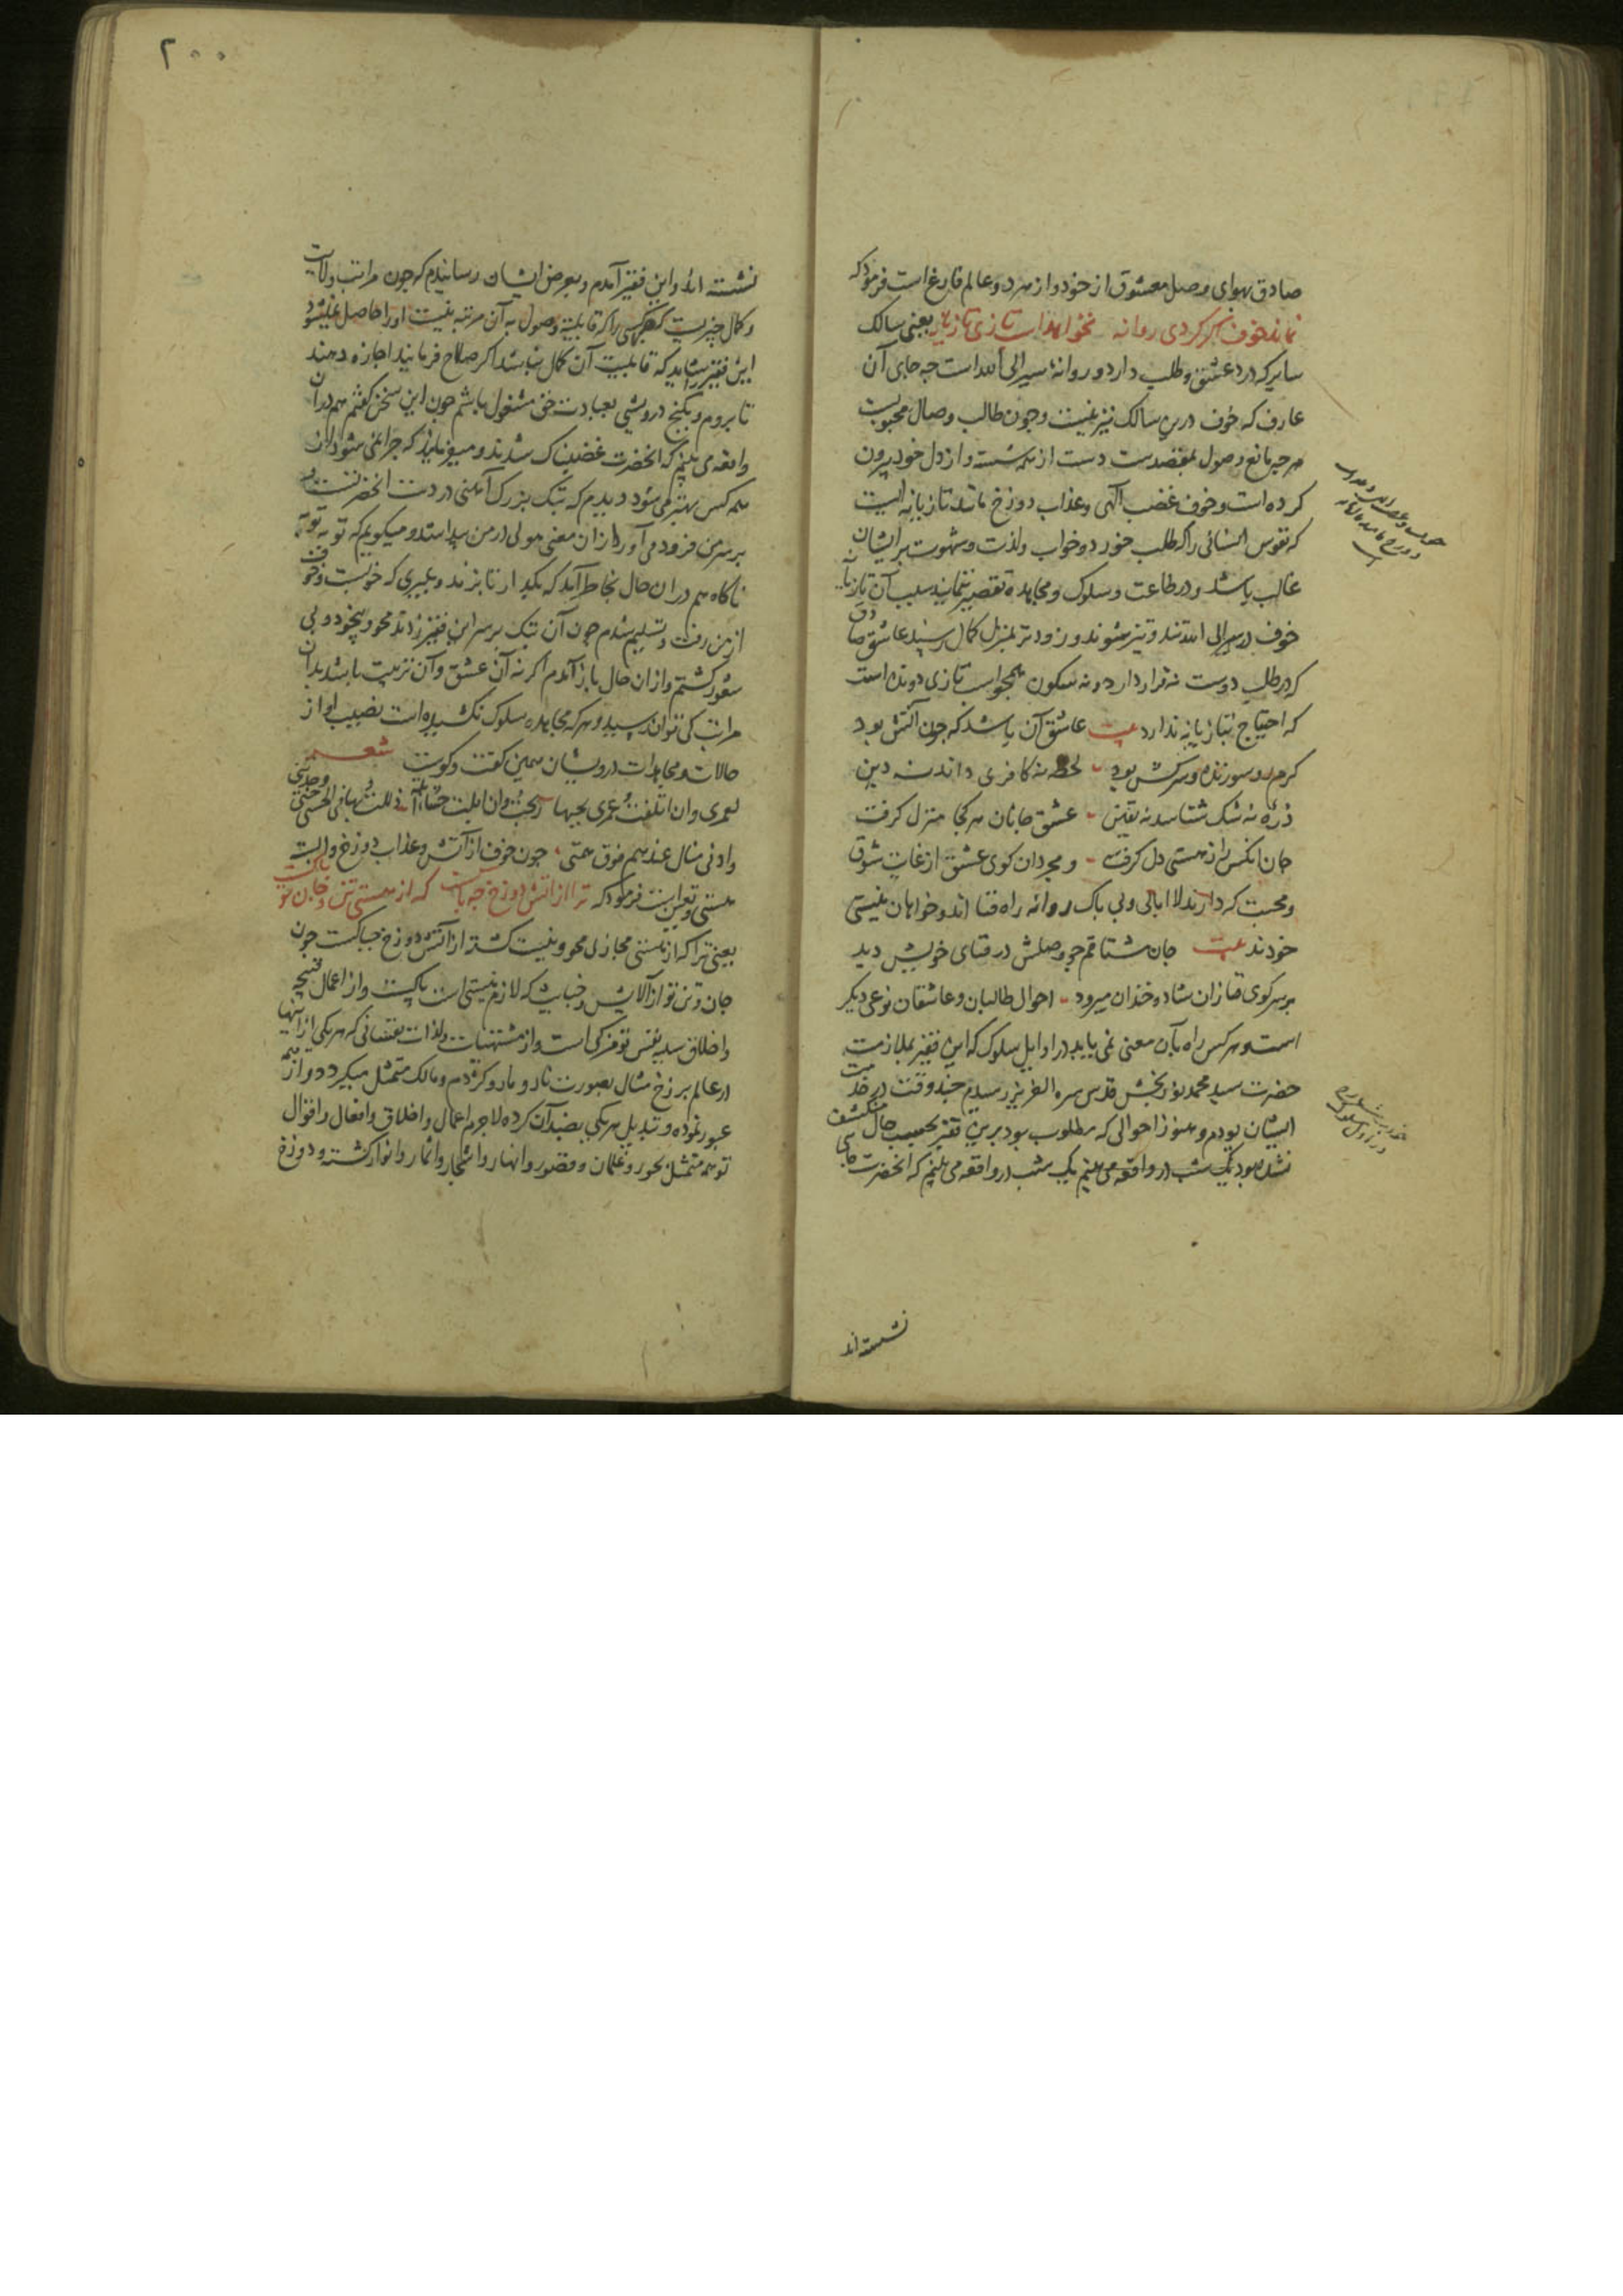 صادق بهوای وصل معشوق از خود و از هر دو عالم فارغ است فرمود که
نماند خوف اگر گردی روانه نخواهد اسب تازی تازیانه یعنی سالک
سایر که درد عشق و طلب دارد و روانهٔ سیر الی الله است چه جای آن
عارف که خوف درین سالک نیز نیست و چون طالب وصال محبوبست
هرچه مانع وصول بمقصدست دست از همه شسته و از دل خود بیرون
کرده است و خوف غضب الهی و عذاب دوزخ مانند تازیانه ایست
که نفوس انسانی را که طلب خورد و خواب و لذت و شهوت بر ایشان
غالب باشد و در طاعت و سلوک و مجاهده تقصیر نمایند بسبب آن تازیانه
خوف در سیر الی الله تند و تیز میشوند و زودتر بمنزل کمال رسند عاشق صادق
که در طلب دوست نه قرار دارد و نه سکون همچو اسب تازی دونده است
که احتیاج بتازیانه ندارد بیت عاشق آن باشد که چون آتش بود
گرم رو سوزنده و سرکش بود لحظهٔ نه کافری داند نه دین
ذرهٔ نه شک شناسد نه یقین عشق جانان هر کجا منزل گرفت
جان آنکس را ز هستی دل گرفت و مجردان کوی عشق از غایت شوق
و محبت که دارند لاابالی و بی باک روانه راه فنا اند و خواهان نیستی
خودند بیت جان مشتاقم چو وصلش در فنای خویش دید
بر سر کوی فنا زان شاد و خندان میرود احوال طالبان و عاشقان نوعی دیگر
است و هر کس راه بآن معنی نمی یابد در اوایل سلوک که این فقیر بملازمت
حضرت سید محمد نوربخش قدس سره العزیز رسیدم چند وقت در خدمت
ایشان بودم و هنوز از احوالی که مطلوب بود برین فقیر بحسب حال منکشف
نشده بود یک شب در واقعه می بینم یک شب در واقعه می بینم که آنحضرت جایی
نشسته اند
۲۰۰
نشسته اند و این فقیر آمدم و بعرض ایشان رسانیدم که چون مراتب ولایت
و کمال چیزیست که هر کسی را که قابلیت وصول به آن مرتبه نیست او را حاصل نمیشود
این فقیر را شاید که قابلیت آن کمال نباشد اگر صلاح فرمایند اجازه دهند
تا بروم و بکنج درویشی بعبادت حق مشغول باشم چون این سخن گفتم هم در آن
واقعه می بینم که آنحضرت غضبناک شدند و میفرمایند که چرا نمی شود از آن
همه کس بهتر می شود دیدم که پتک بزرگ آهنی در دست آنحضرتست و
بر سر من فرود می آورد از آن معنی هولی در من پیدا شد و میگویم که توبه توبه
ناگاه هم در آن حال بخاطر آمد که بگذار تا بزند و بمیری که خوبست و خوف
از من رفت و تسلیم شدم چون آن پتک بر سر این فقیر زدند محو و بیخود و بی
شعور گشتم و از آن حال باز آمدم اگر نه آن عشق و آن تربیت باشد بدان
مراتب کی توان رسید و هر که مجاهده سلوک نکشیده است نصیب او از
حالات و مجاهدات درویشان همین گفت و گوست شعر
لعمری و ان اتلفت عمری بحبها ربحت و ان ابلت حشائی ابلت ذللت بها فی الحی حتی وجدتنی
و ادنی منال عندهم فوق همتی چون خوف از آتش و عذاب دوزخ وابسته
هستی و تعین است فرمود که ترا از آتش دوزخ چه باکست که از هستی تن و جان تو پاکست
یعنی ترا که از هستی مجازی محو و نیست گشته از آتش دوزخ چه باکست چون
جان و تن تو از آلایش و خباثت که لازم هستی است پاکست و از اعمال قبیحه
و اخلاق سیئه نفس تو مزکی است و از مشتهیات و لذات نفسانی که هر یکی از اینها
در عالم برزخ مثال بصورت نار و مار و کژدم و مالک متمثل میگردد و از همه
عبور نموده و تبدیل هر یکی بضد آن کرده لاجرم اعمال و اخلاق و افعال و اقوال
تو همه متمثل بحور و غلمان و قصور و انهار و اشجار و اثمار و انوار گشته و دوزخ